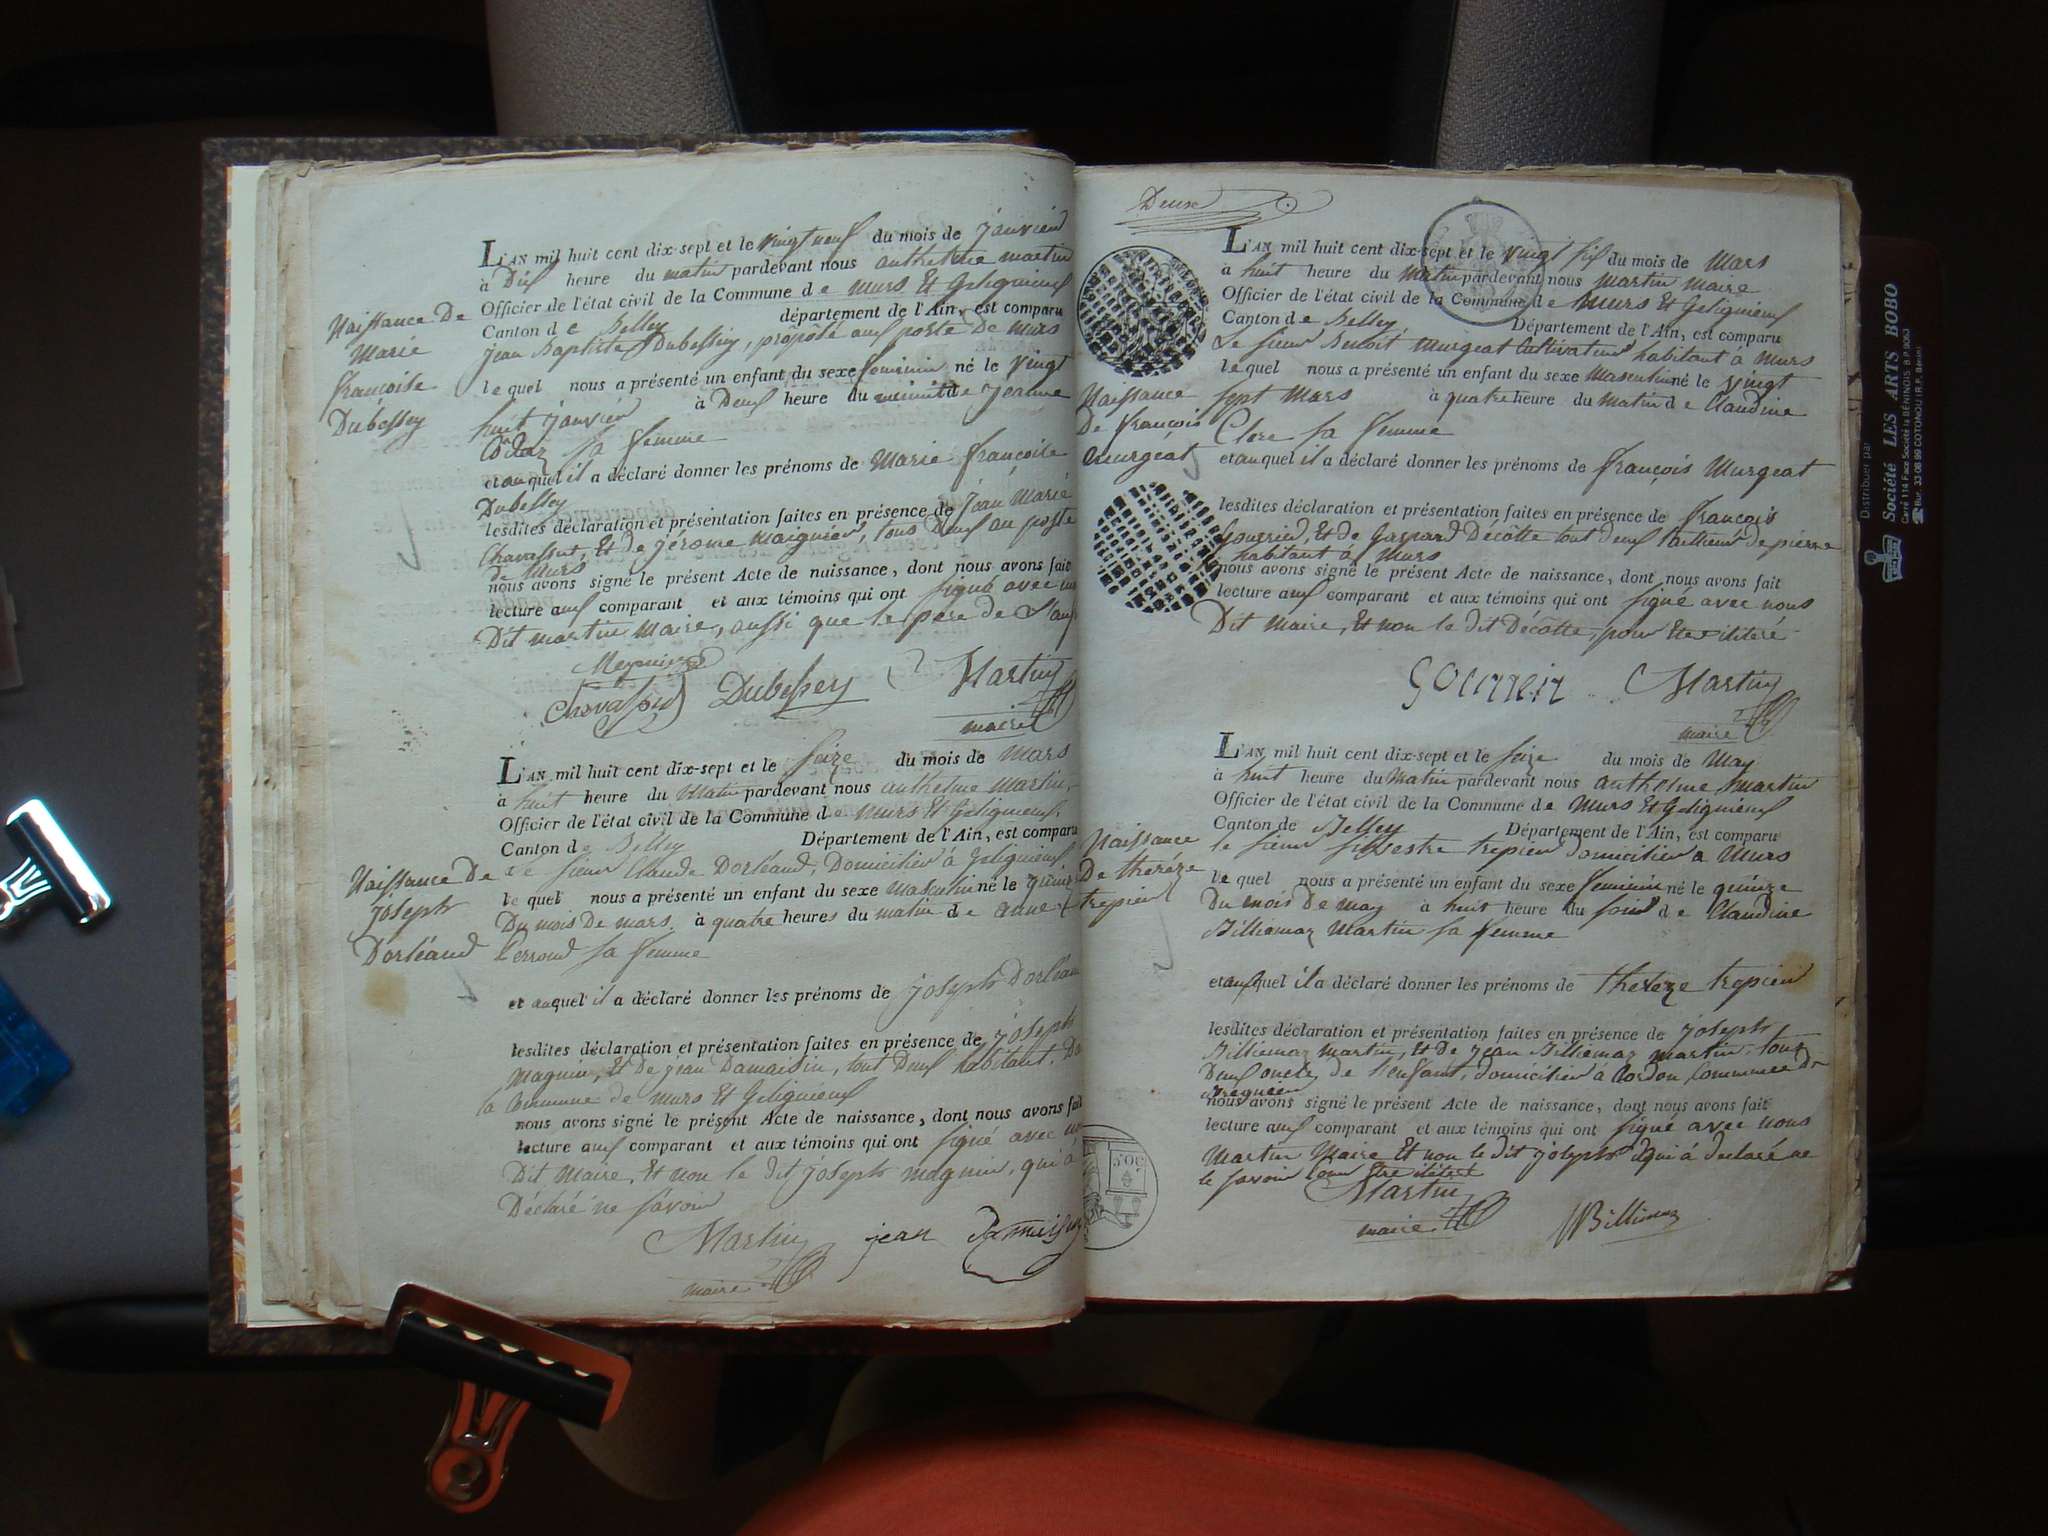 L'AN mil huit cent dix-sept et le vingt neuf du mois de janvier
à Dix heure du matin pardevant nous anthelme martin
Officier de l'état civil de la Commune de murs Et Gelignieux
Canton de Belley département de l'Ain, est comparu
jean Baptiste Dubessey, prépôsé aux poste De murs
lequel nous a présenté un enfant du sexe feminin né le vingt
huit janvier à Deux heure du minuit de jeanne
sa femme
et auquel il a déclaré donner les prénoms de Marie françoise
Dubessey
lesdites déclaration et présentation faites en présence de jean Marie
Et de jérome tous Deux au poste
de Murs
nous avons signé le présent Acte de naissance, dont nous avons fait
lecture aux comparant et aux témoins qui ont signé avec
Dit martin Maire, aussi que le père de
Naissance De
Marie
françoise
Dubessey
Dubessey Martin
maire
L'AN mil huit cent dix-sept et le seize du mois de Mars
à huit heure du Matin pardevant nous anthelme Martin,
Officier de l'état civil de la Commune de Murs Et Gelignieux,
Canton de Belley Département de l'Ain, est comparu
le sieur Claude Dorléand, Domicilier à Gelignieux
lequel nous a présenté un enfant du sexe masculin né le quinze
Du mois De mars, à quatre heures du matin de anne
Perroud sa femme
et auquel il a déclaré donner les prénoms de joseph Dorléan
lesdites déclaration et présentation faites en présence de joseph
magnin, Et de jean Damaisin, tout Deux habitant. De
la Commune de murs Et Gelignieux
nous avons signé le présent Acte de naissance, dont nous avons fait
lecture aux comparant et aux témoins qui ont signé avec
Dit Maire, Et non le dit joseph magnin, qui à
Déclaré ne savoir
Naissance De
joseph
Dorléand
Martin jean
maire
Deuxe
L'AN mil huit cent dix-sept et le vingt six du mois de Mars
à huit heure du Matin pardevant nous Martin maire
Officier de l'état civil de la Commune de Murs Et Gelignieux
Canton de Belley, Département de l'Ain, est comparu
Le sieur Benoit Murgeat Cultivateur habitant à Murs
lequel nous a présenté un enfant du sexe Masculin né le vingt
sept Mars à quatre heure du Matin de Claudine
Clere sa femme
et auquel il a déclaré donner les prénoms de françois Murgeat
lesdites déclaration et présentation faites en présence de françois
Et de Gaspard Décôtte tout deux tailleur de pierre
habitant à Murs
nous avons signé le présent Acte de naissance, dont nous avons fait
lecture aux comparant et aux témoins qui ont signé avec nous
Dit Maire, Et non le dit Décôtte, pour Etre iliteré
Naissance
De françois
Murgeat
Martin
maire
L'AN mil huit cent dix-sept et le seize du mois de May
à huit heure du Matin pardevant nous anthelme Martin
Officier de l'état civil de la Commune de Murs Et Gelignieux
Canton de Belley Département de l'Ain, est comparu
le sieur silvestre trepier domicilier à Murs
lequel nous a présenté un enfant du sexe feminin né le quinze
Du mois De may à huit heure du soir de Claudine
Billiemaz Martin sa femme
et auquel il a déclaré donner les prénoms de thereze trepier
lesdites déclaration et présentation faites en présence de joseph
Billiemaz Martin, Et de jean Billiemaz martin, tous
Deux oncle de l'enfant, domicilier à Cordon, Commune De
Bregnier
nous avons signé le présent Acte de naissance, dont nous avons fait
lecture aux comparant et aux témoins qui ont signé avec nous
Martin Maire Et non le dit joseph qui à declaré ne
le savoir pour Etre iliteré
Naissance
De theréze
trepier
Martin
maire Billiemaz
Distribuer par
Société LES ARTS BOBO
Carré 114 Face Société la BÉNINOIS B.P. 9063
Bur. 33 08 99 COTONOU (R.P. Bénin)